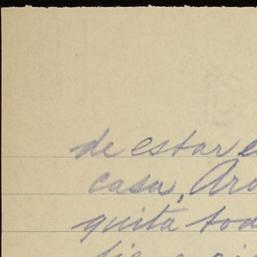 de estar e
casa, Ara
quita tod